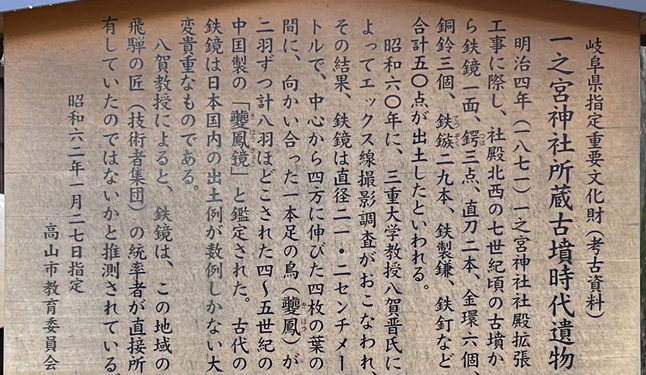 岐阜県指定重要文化財（考古資料）
一之宮神社所蔵古墳時代遺物
明治四年（一八七一）一之宮神社社殿拡張
工事に際し、社殿北西の七世紀頃の古墳か
ら鉄鏡一面、鍔三点、直刀二本、金環六個、
銅鈴三個、鉄鏃二九本、鉄製鎌、鉄釘など
合計五〇点が出土したといわれる。
昭和六〇年に、三重大学教授八賀晋氏に
よってエックス線撮影調査がおこなわれ、
その結果、鉄鏡は直径二一・二センチメー
トルで、中心から四方に伸びた四枚の葉の
間に、向かい合った一本足の鳥（夔鳳）が
二羽ずつ計八羽ほどこされた四～五世紀の
中国製の「夔鳳鏡」と鑑定された。古代の
鉄鏡は日本国内の出土例が数例しかない大
変貴重なものである。
八賀教授によると、鉄鏡は、この地域の
飛騨の匠（技術者集団）の統率者が直接所
有していたのではないかと推測されている。
昭和六二年一月二七日指定
高山市教育委員会